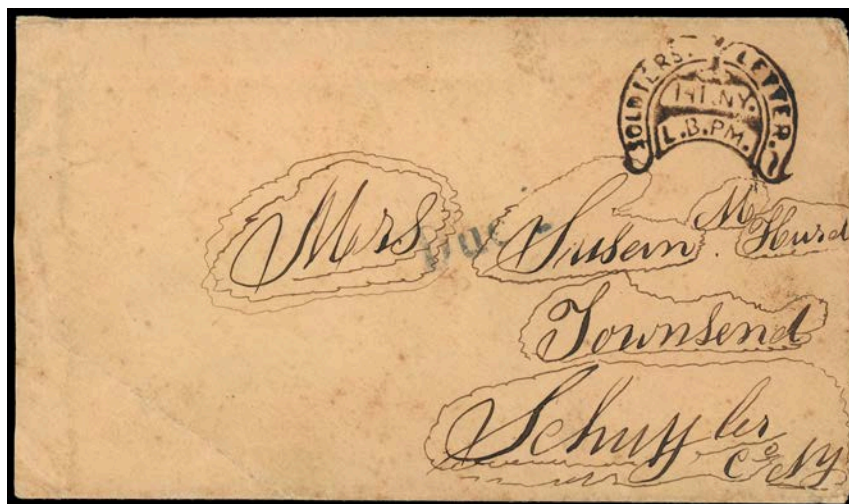 SOLDIERS. LETTER.
141.NY.
L.B.PM.
Mrs Susan. M Hurd
Due
Townsend
Schuyler
Co NY